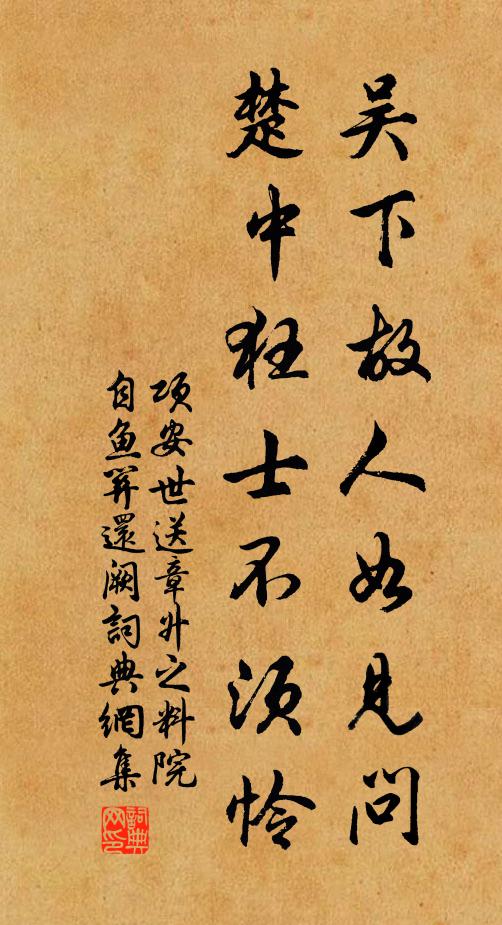 吴下故人如见问
楚中狂士不须怜
项安世送章升之料院
自鱼筓還阙詞典網集
詞典网印